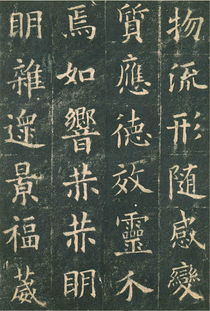 物流形隨感變
質應德效靈介
焉如響赫赫明
明雜遝景福葳